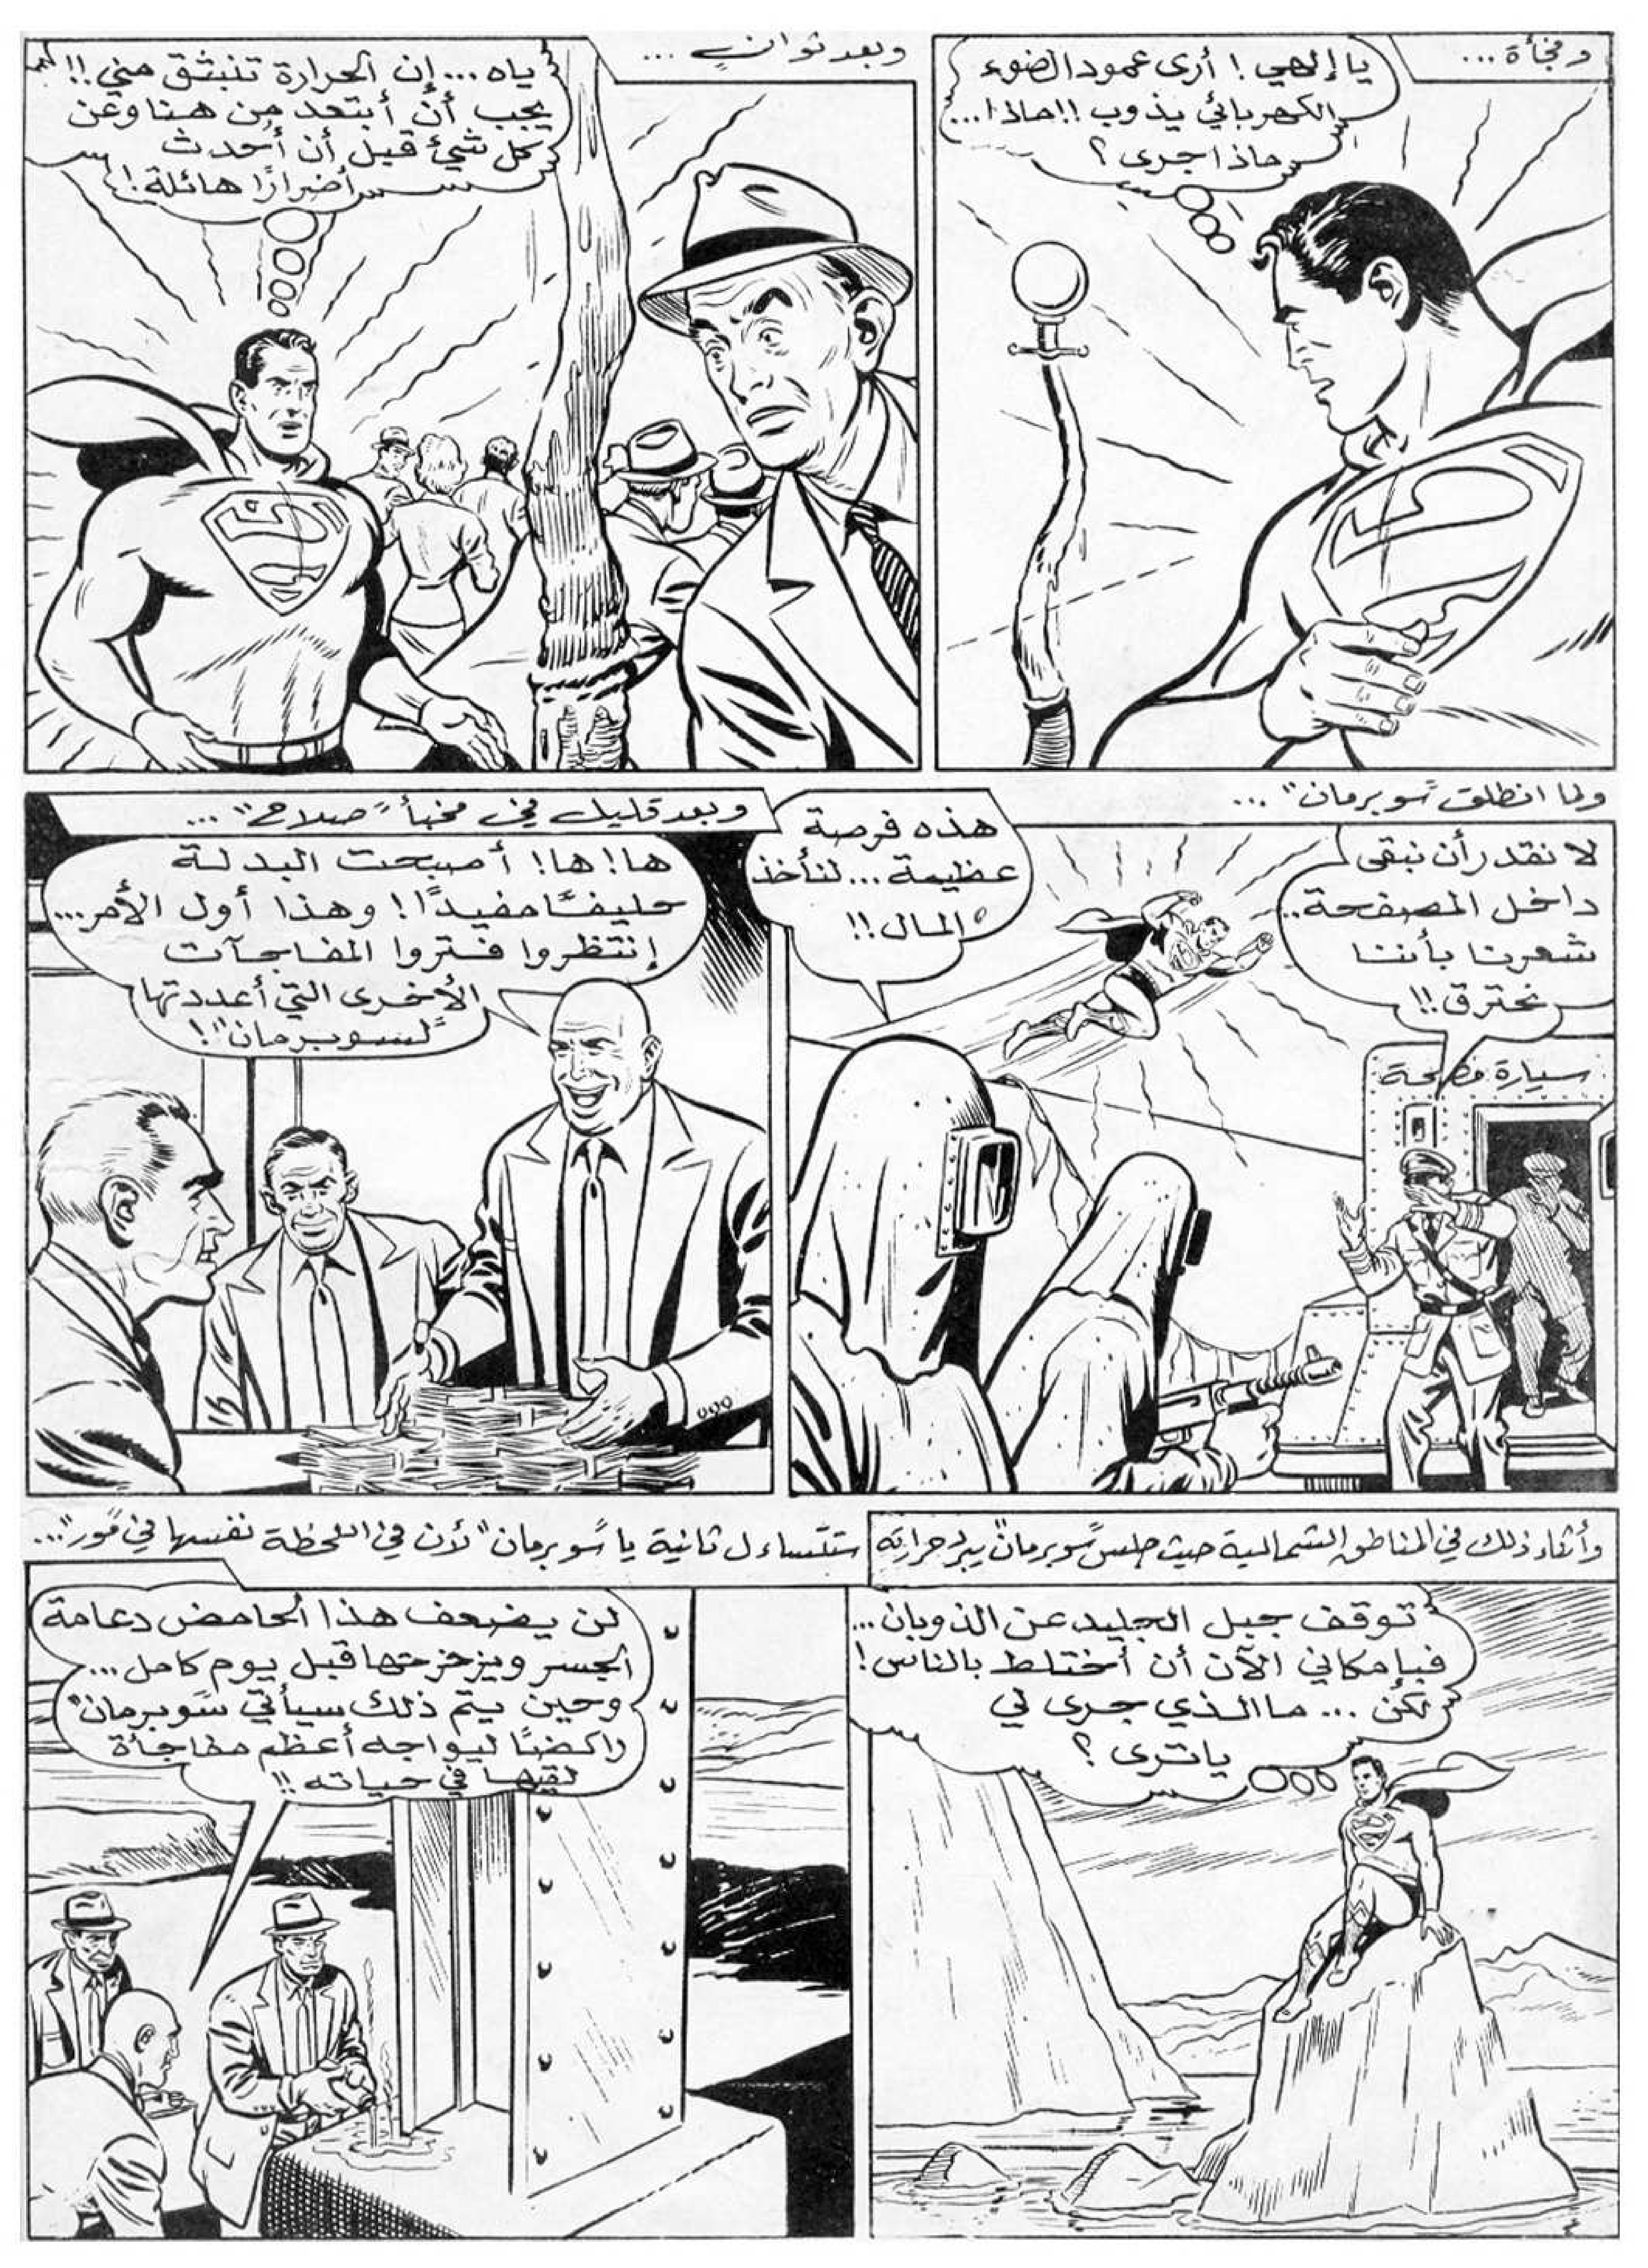 وفجأة...
يا إلهي! أرى عمود الضوء
الكهربائي يذوب!! ماذا...
ماذا جرى؟
وبعد ثوانٍ...
ياه... إن الحرارة تنبثق مني!!
يجب أن أبتعد من هنا وعن
كل شيئ قبل أن أحدث
أضرارًا هائلة!
ولما انطلق "سوبرمان"...
لا نقدر أن نبقى
داخل المصفحة..
شعرنا بأننا
نحترق!!
هذه فرصة
عظيمة... لنأخذ
المال!!
سيارة مصفحة
وبعد قليل في مخبأ "صلاح"...
ها! ها! أصبحت البدلة
حليفًا مفيدًا! وهذا أول الأمر...
إنتظروا فتروا المفاجآت
الأخرى التي أعددتها
"لسوبرمان"!
وأثناء ذلك في المناطق الشمالية حيث جلس "سوبرمان" يبرد حرارته
توقف جبل الجليد عن الذوبان...
فبإمكاني الآن أن أختلط بالناس!
لكن... ما الذي جرى لي
يا ترى؟
ستتساءل ثانية يا "سوبرمان" لأن في اللحظة نفسها في "مور"...
لن يضعف هذا الحامض دعامة
الجسر ويزحزحها قبل يوم كامل...
وحين يتم ذلك سيأتي "سوبرمان"
راكضًا ليواجه أعظم مفاجأة
لقيها في حياته!!